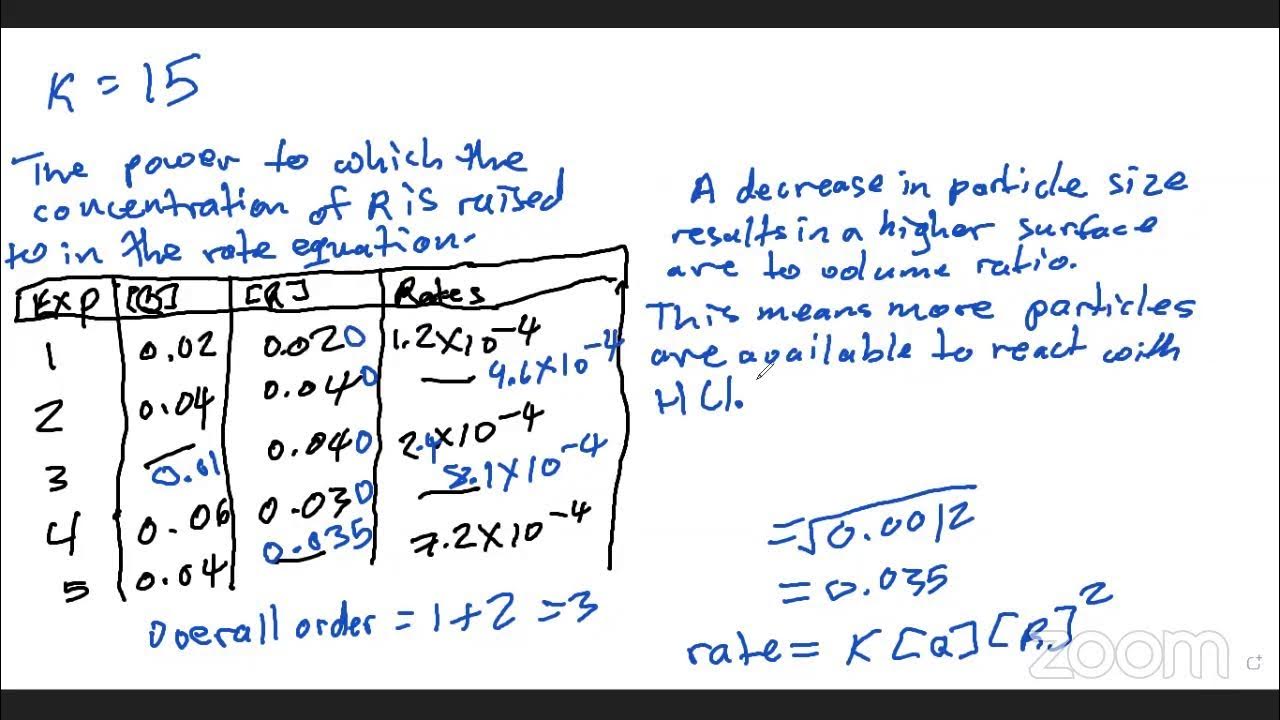 K = 15
The power to which the
concentration of R is raised
to in the rate equation.
Exp [Q] [R] Rates
1 0.02 0.020 1.2×10⁻⁴
2 0.04 0.040 9.6×10⁻⁴
3 0.01 0.040 2.4×10⁻⁴
4 0.06 0.030 8.1×10⁻⁴
5 0.04 0.035 7.2×10⁻⁴
Overall order = 1+2 = 3
A decrease in particle size
results in a higher surface
are to volume ratio.
This means more particles
are available to react with
HCl.
= √0.0012
= 0.035
rate = K [Q] [R]²
zoom